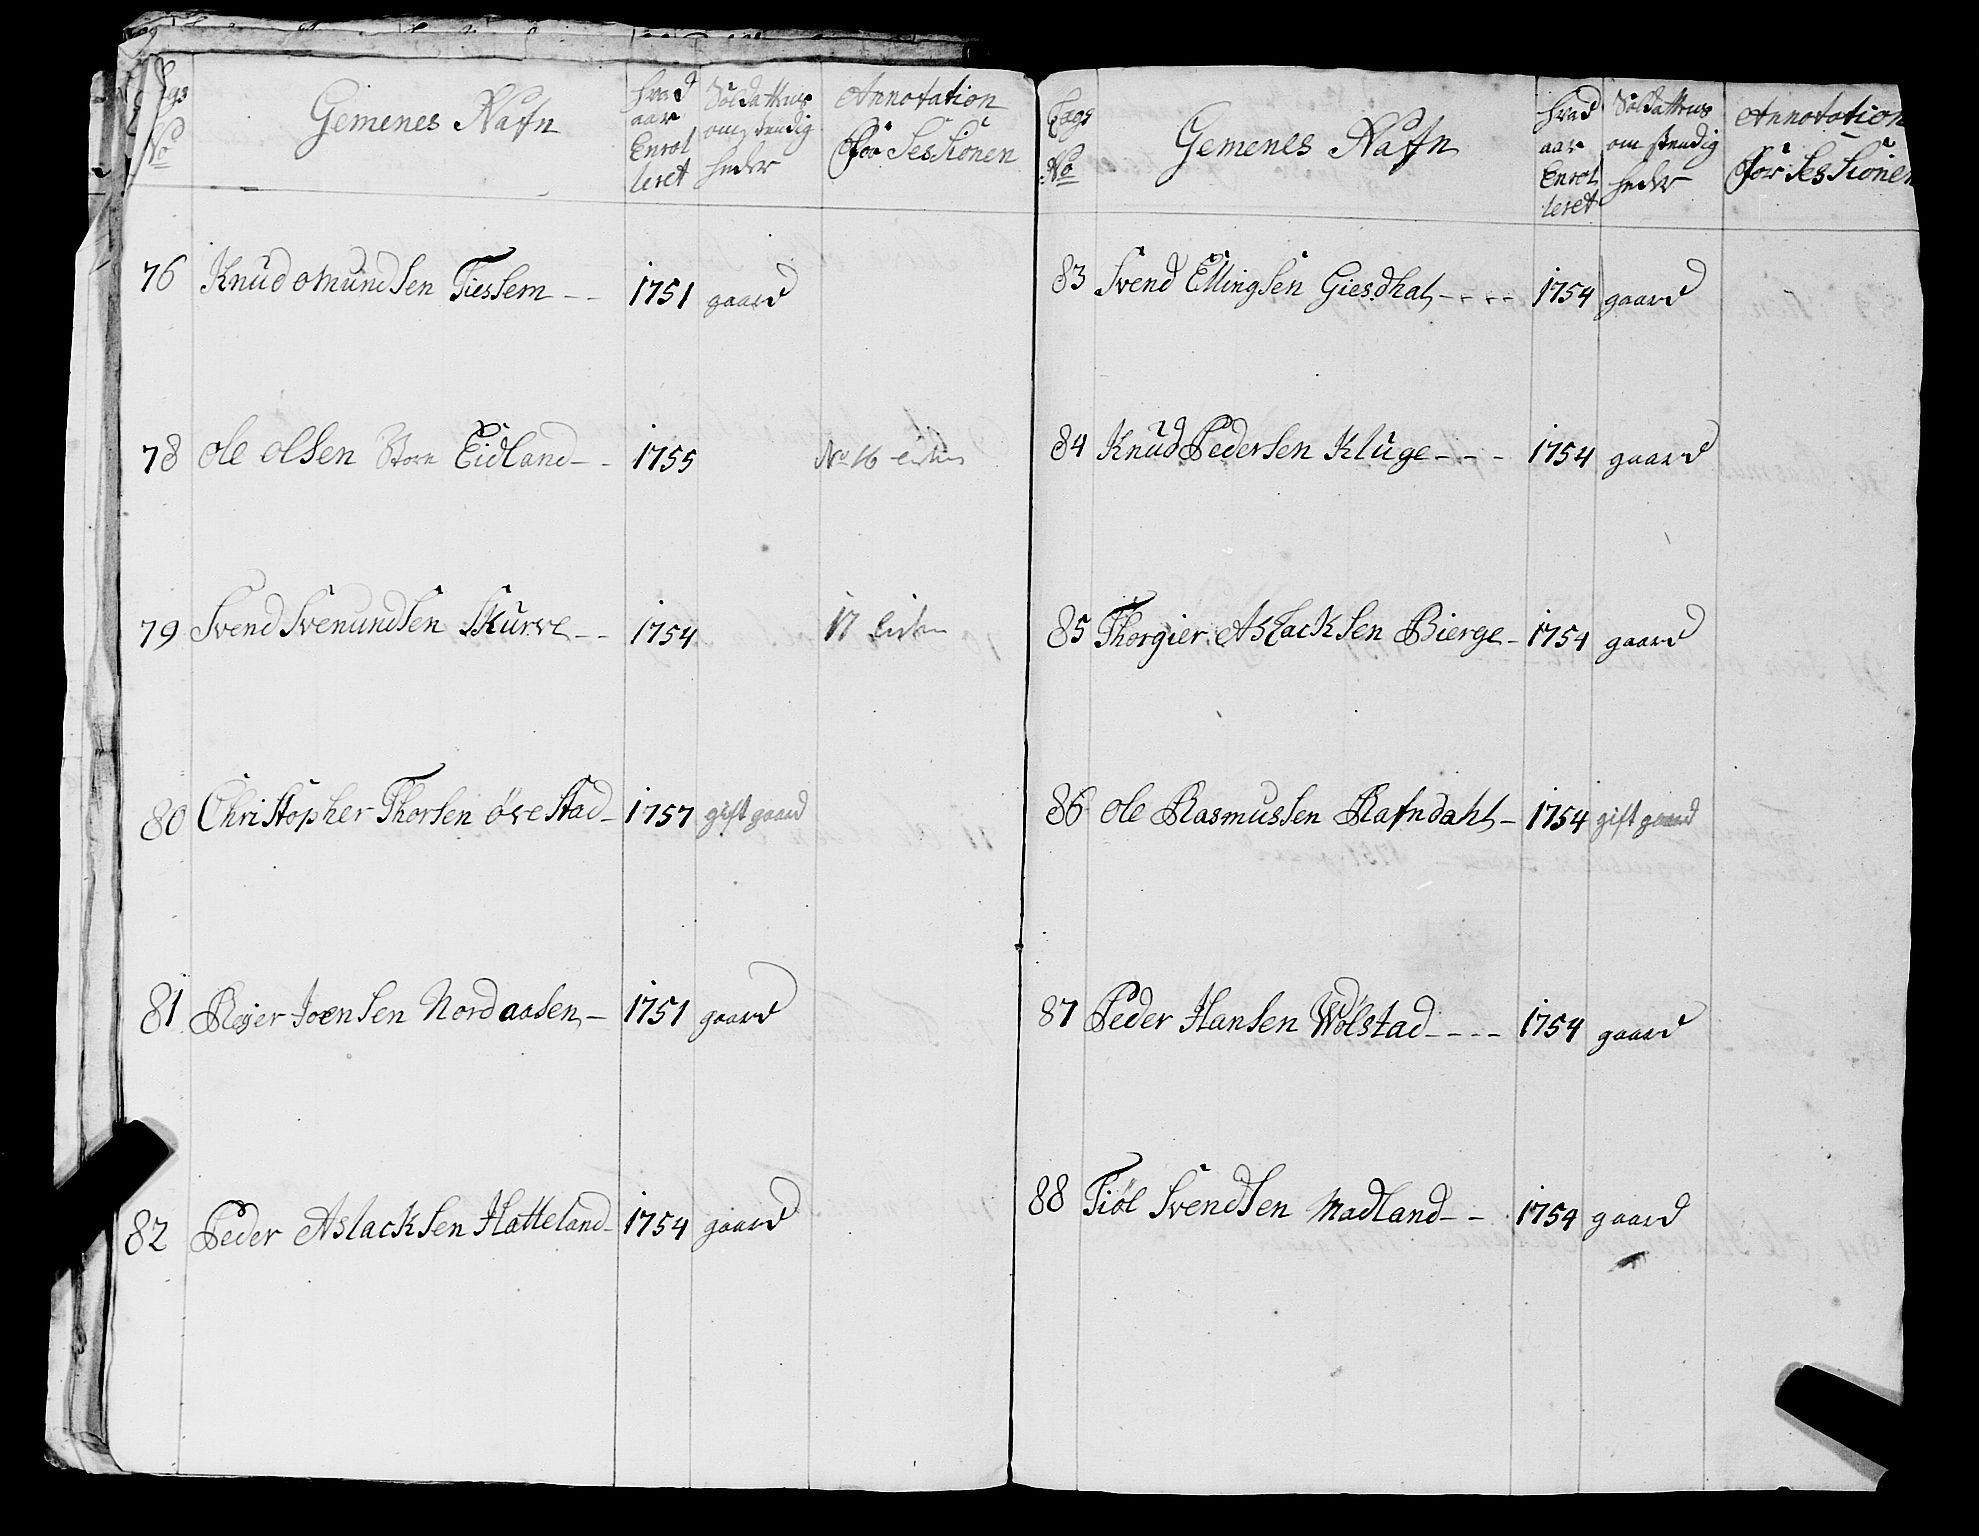 Lægs No
Gemenes Nafn
hvad aar Enrolleret
Soldatternes omstendigheder
Annotation for Sessionen
76 Knud omundsen Tiessem - - 1751 gaard
78 ole olsen Store Eidland - - 1755 No 16
79 Svend Svenundsen Skurve - - 1754 17
80 Christopher Thorsen övestad - 1757 gift gaard
81 Reier Joensen Nordaasen - 1751 gaard
82 Peder Aslacksen Hatteland - 1754 gaard
Lægs No
Gemenes Nafn
hvad aar Enrolleret
Soldatternes omstendigheder
Annotation for Sessionen
83 Svend Ellingsen Giesdhal - - - - 1754 gaard
84 Knud Pedersen Kluge - - - 1754 gaard
85 Thorgier Aslacksen Bierge - 1754 gaard
86 ole Rasmussen Rafndahl - 1754 gift gaard
87 Peder Hansen Wölstad - - - - 1754 gaard
88 Tiöl Svendsen Madland - - 1754 gaard